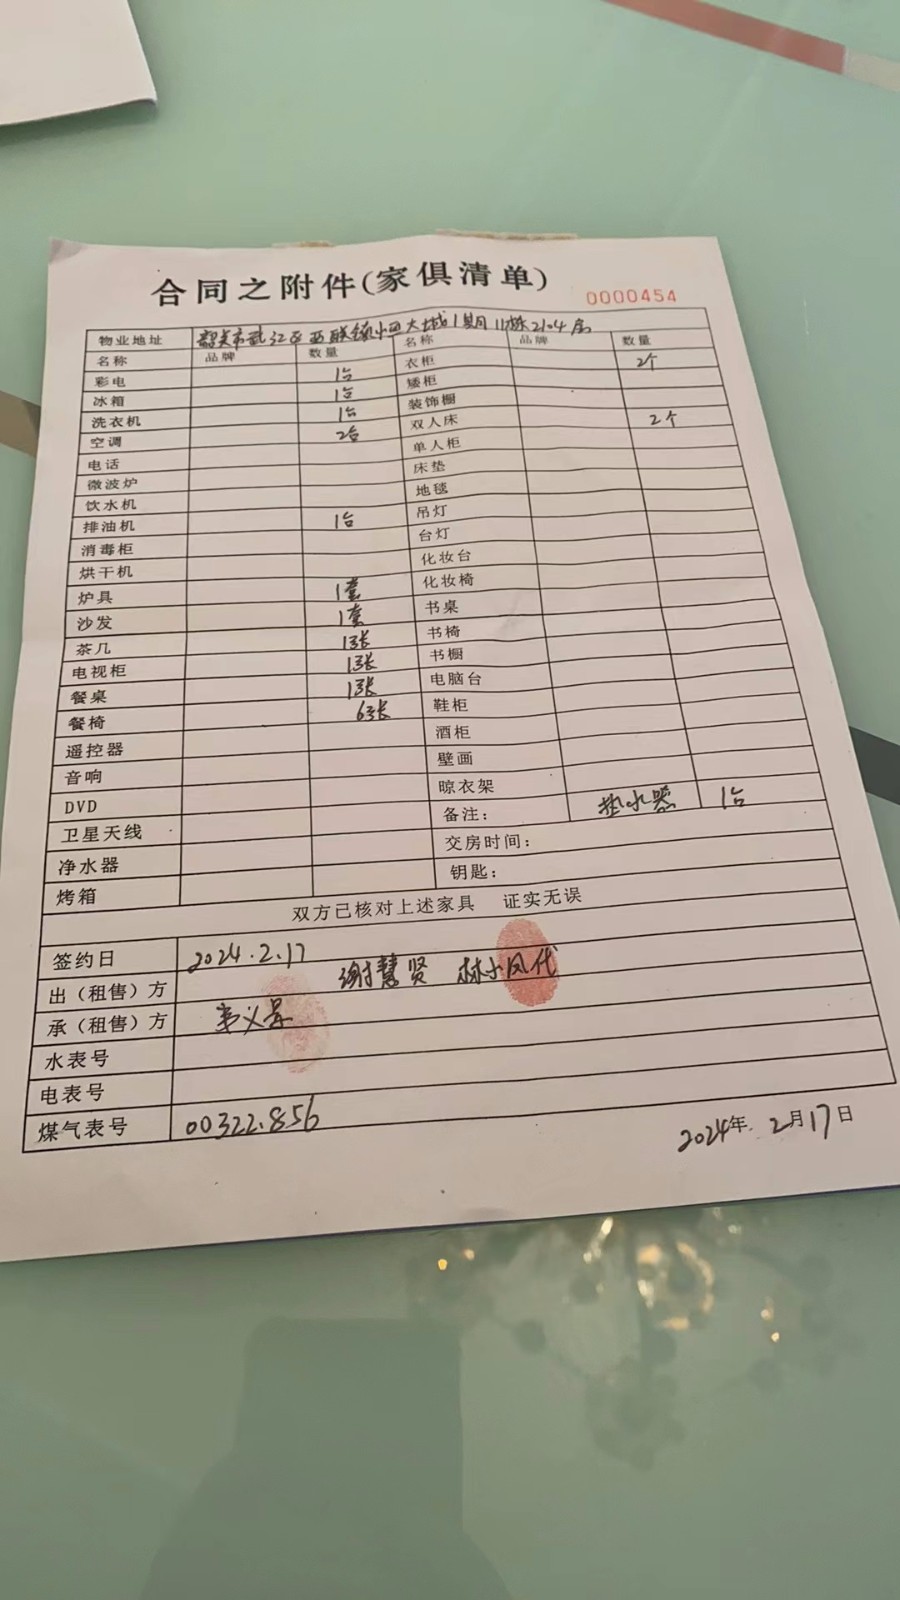 合同之附件(家俱清单)
0000454
物业地址 韶关市武江区西联镇恒大城1期11栋2104房
名称 品牌 数量 名称 品牌 数量
彩电 1台 衣柜 2个
冰箱 1台 矮柜
洗衣机 1台 装饰橱
空调 2台 双人床 2个
电话 单人柜
微波炉 床垫
饮水机 地毯
排油机 1台 吊灯
消毒柜 台灯
烘干机 化妆台
炉具 1套 化妆椅
沙发 1套 书桌
茶几 1张 书椅
电视柜 1张 书橱
餐桌 1张 电脑台
餐椅 6张 鞋柜
遥控器 酒柜
音响 壁画
DVD 晾衣架
卫星天线 备注: 热水器 1台
净水器 交房时间:
烤箱 钥匙:
双方已核对上述家具 证实无误
签约日 2024.2.17
出(租售)方 谢慧贤 林小凤代
承(租售)方
水表号
电表号
煤气表号 00322.856
2024年2月17日